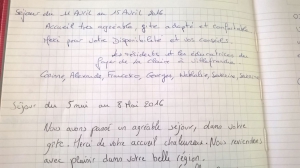 Séjour du 11 Avril au 15 Avril 2016
Accueil très agréable, gîte adapté et confortable
Merci pour votre Disponibilité et vos conseils
Les résidents et les éducatrices du
foyer de
à Villefranche
Corinne, Alexandre, Francisco, Georges, Nathalie, Sandrine,
Séjour du 5 mai au 8 Mai 2016
Nous avons passé un agréable séjour, dans votre
gîte. Merci de votre accueil chaleureux. Nous reviendrons
avec plaisir dans votre belle région.